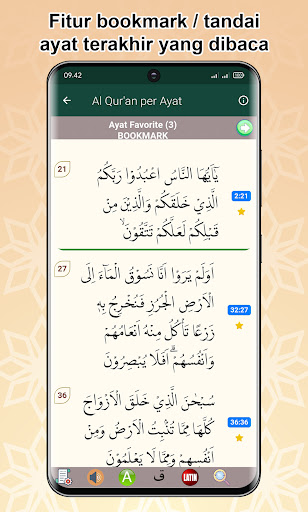 Fitur bookmark / tandai
ayat terakhir yang dibaca
09.42
Al Qur'an per Ayat
Ayat Favorite (3)
BOOKMARK
21
يٰٓاَيُّهَا النَّاسُ اعْبُدُوْا رَبَّكُمُ
الَّذِيْ خَلَقَكُمْ وَالَّذِيْنَ مِنْ
قَبْلِكُمْ لَعَلَّكُمْ تَتَّقُوْنَۙ
2:21
27
اَوَلَمْ يَرَوْا اَنَّا نَسُوْقُ الْمَاۤءَ اِلَى
الْاَرْضِ الْجُرُزِ فَنُخْرِجُ بِهٖ
زَرْعًا تَأْكُلُ مِنْهُ اَنْعَامُهُمْ
وَاَنْفُسُهُمْۗ اَفَلَا يُبْصِرُوْنَ
32:27
36
سُبْحٰنَ الَّذِيْ خَلَقَ الْاَزْوَاجَ
كُلَّهَا مِمَّا تُنْۢبِتُ الْاَرْضُ وَمِنْ
اَنْفُسِهِمْ وَمِمَّا لَا يَعْلَمُوْنَ
36:36
A
ق
LATIN